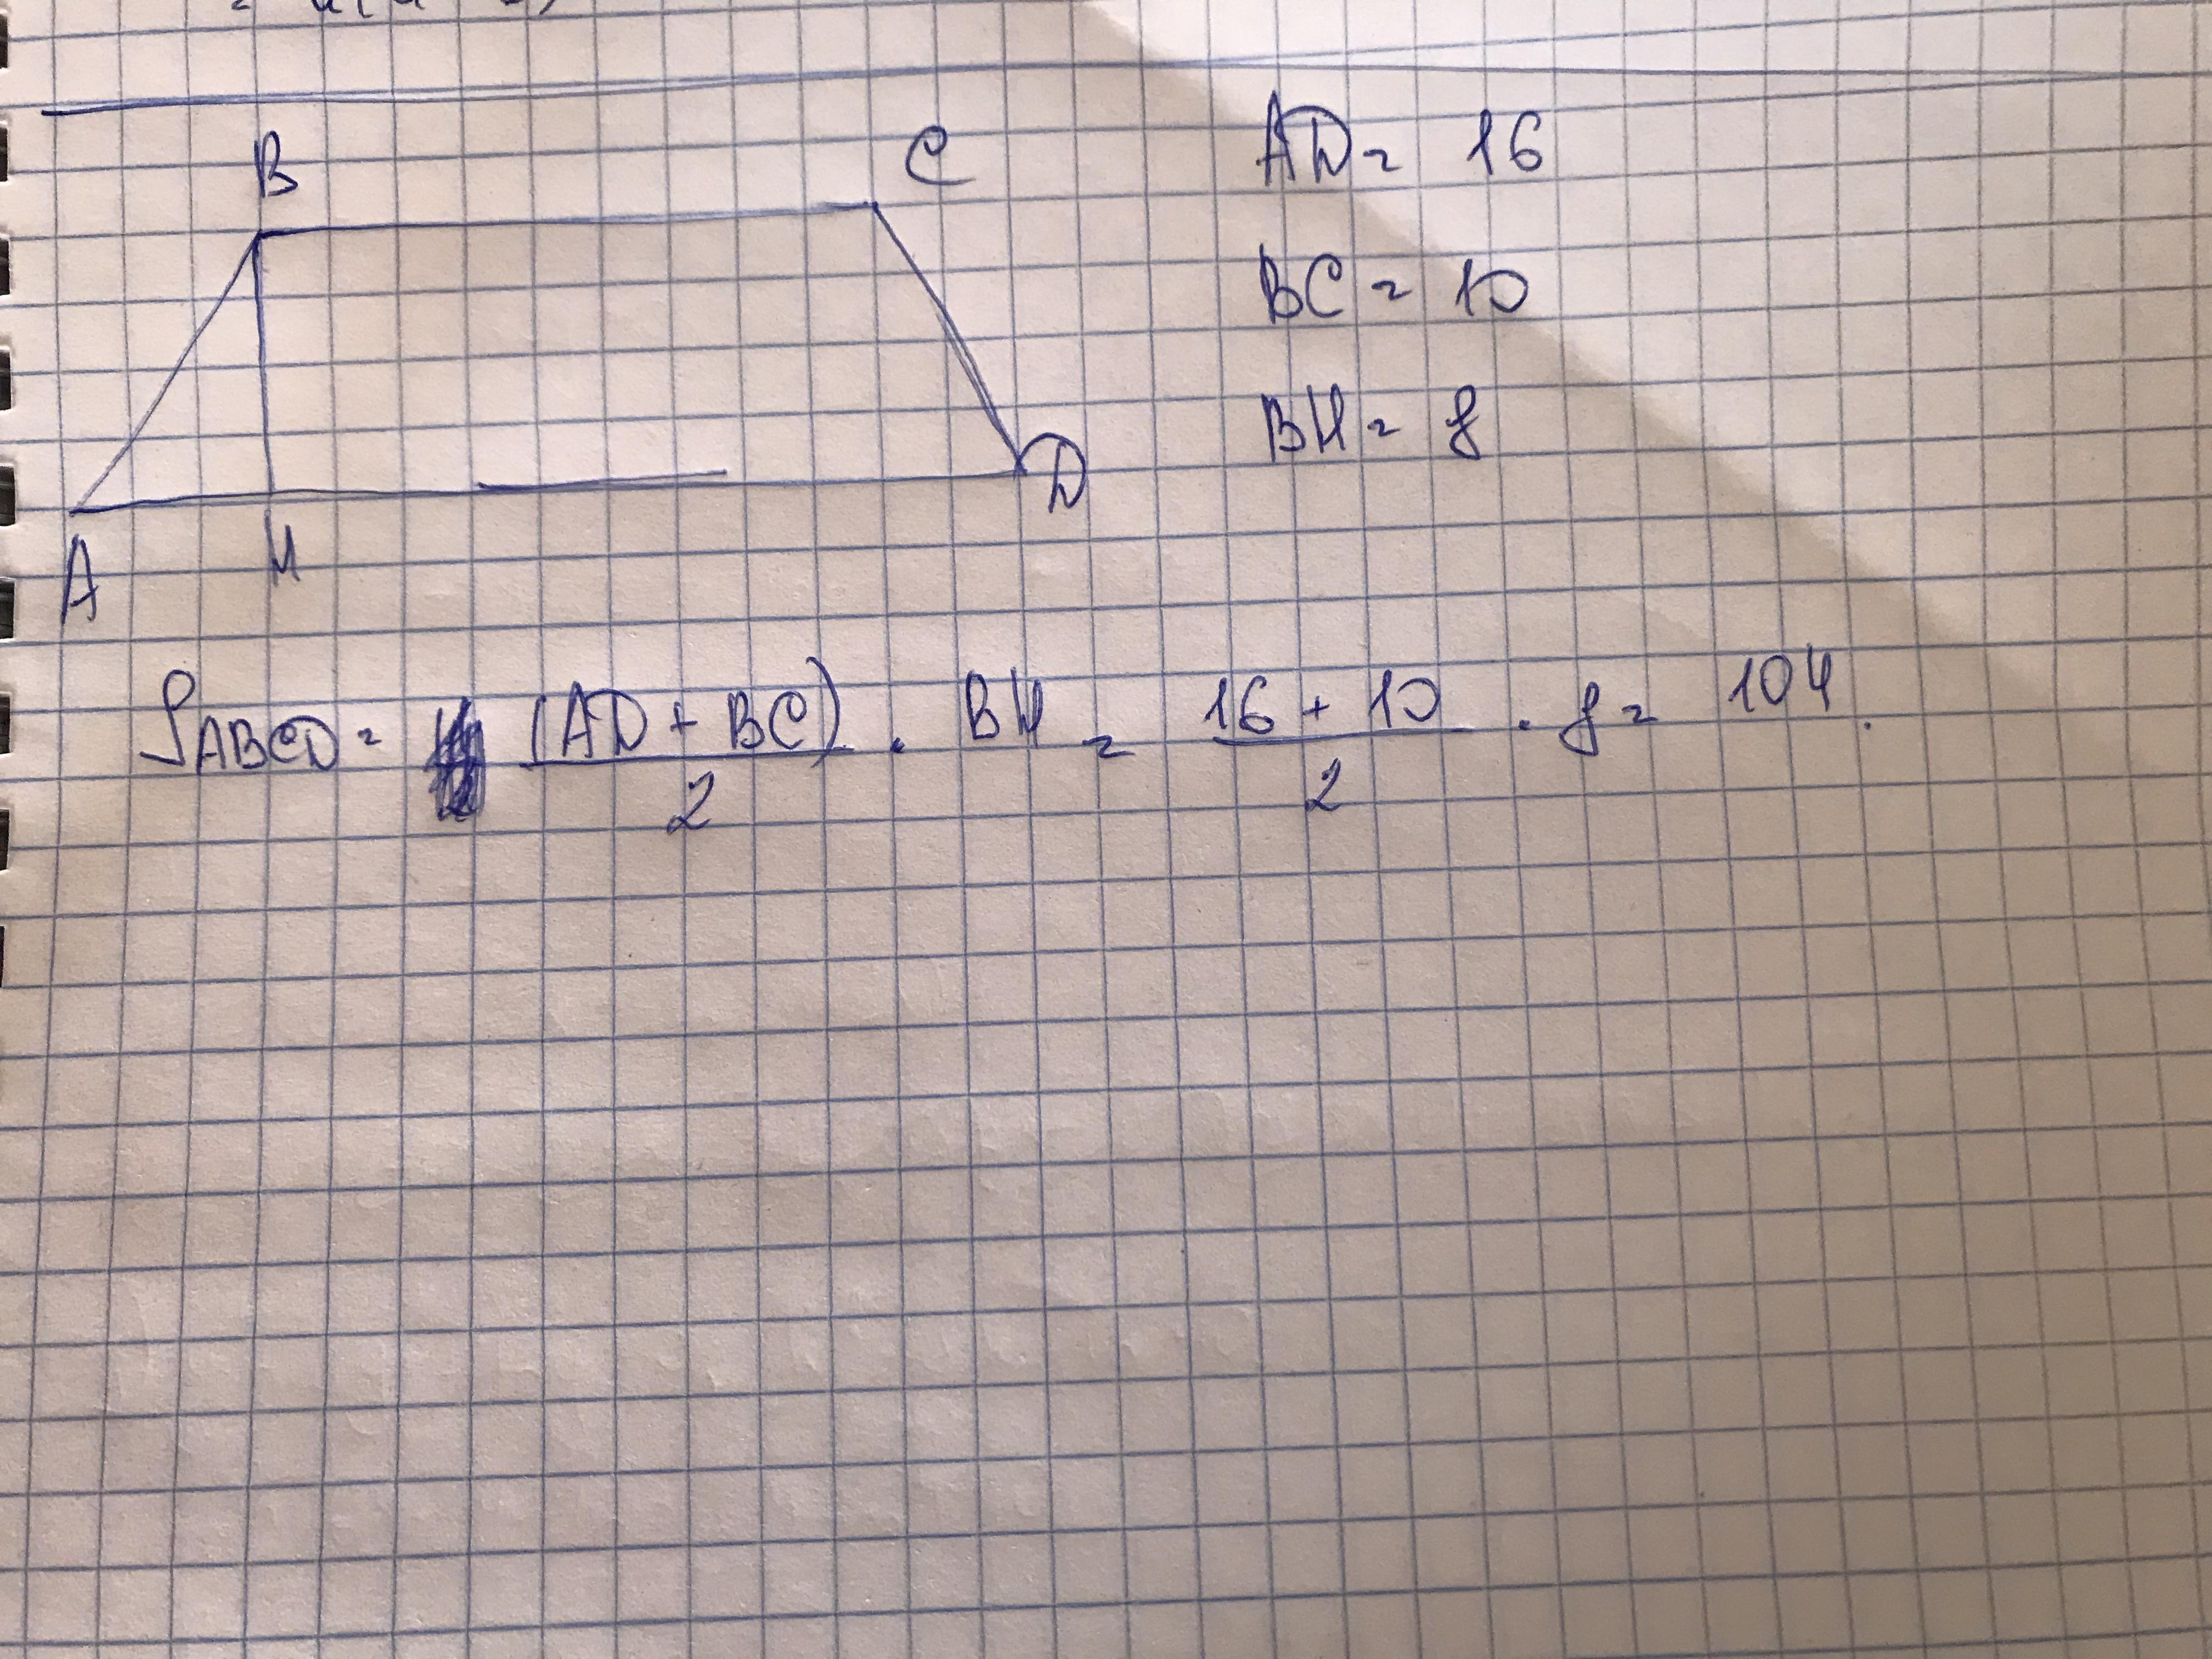 B C
AD = 16
BC = 10
BH = 8
A H D
S ABCD = (AD + BC) / 2 · BH = 16 + 10 / 2 · 8 = 104.